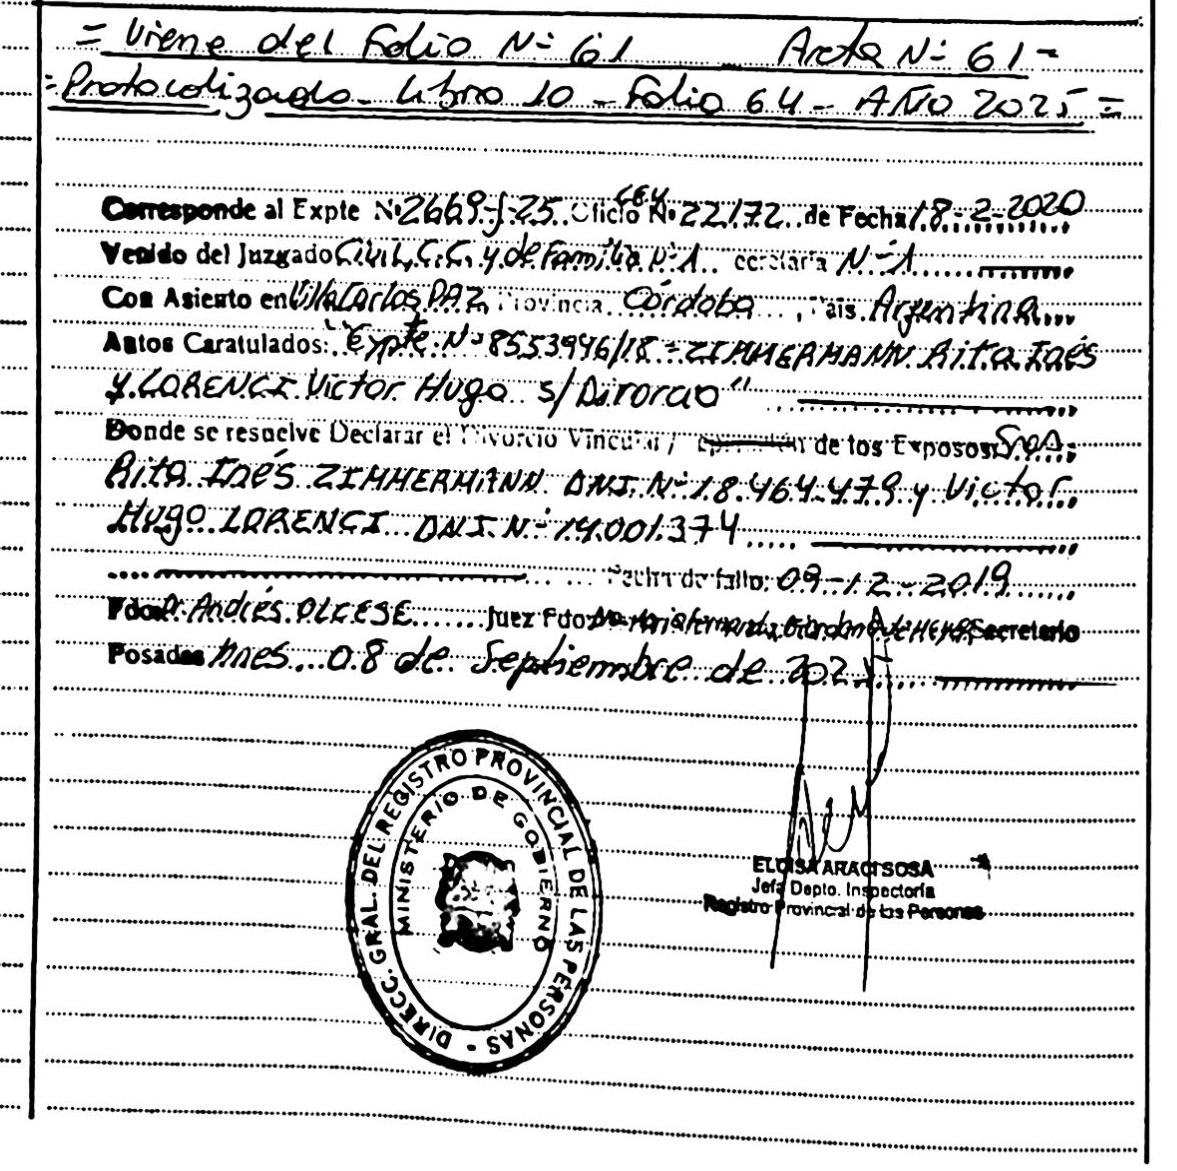 = Viene del Folio N- 61 Acta N- 61 =
= Protocolizado - Libro 10 - Folio 64 - AÑO 2025 =
Corresponde al Expte Nº 2669-J-25 Oficio Nº LEY 22.172 de Fecha 18-2-2020
Venido del Juzgado Civil, C.C. y de Familia Nº 1 Secretaría N-1
Con Asiento en Villa Carlos PAZ, Provincia Córdoba, País Argentina
Autos Caratulados: "Expte Nº 8553946/18 - ZIMMERMANN Rita Inés
Y LORENCI Victor Hugo s/Divorcio"
Donde se resuelve Declarar el Divorcio Vincular / de los Exposos Sres.
Rita Inés ZIMMERMANN DNI Nº 18.464.479 y Victor
Hugo LORENCI DNI Nº 14.001.374
Fecha de fallo: 09-12-2019
Fdo: Dr. Andrés OLCESE Juez Fdo: Secretario
Posadas Mnes 08 de Septiembre de 2025
DIRECC. GRAL. DEL REGISTRO PROVINCIAL DE LAS PERSONAS -
MINISTERIO DE GOBIERNO
ELOISA ARACI SOSA
Jefa Depto. Inspectoría
Registro Provincial de las Personas